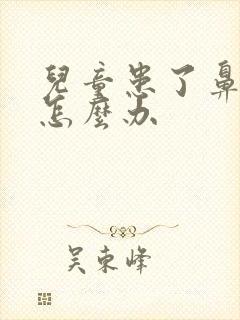 兒童患了鼻
怎麼办
吴束峰